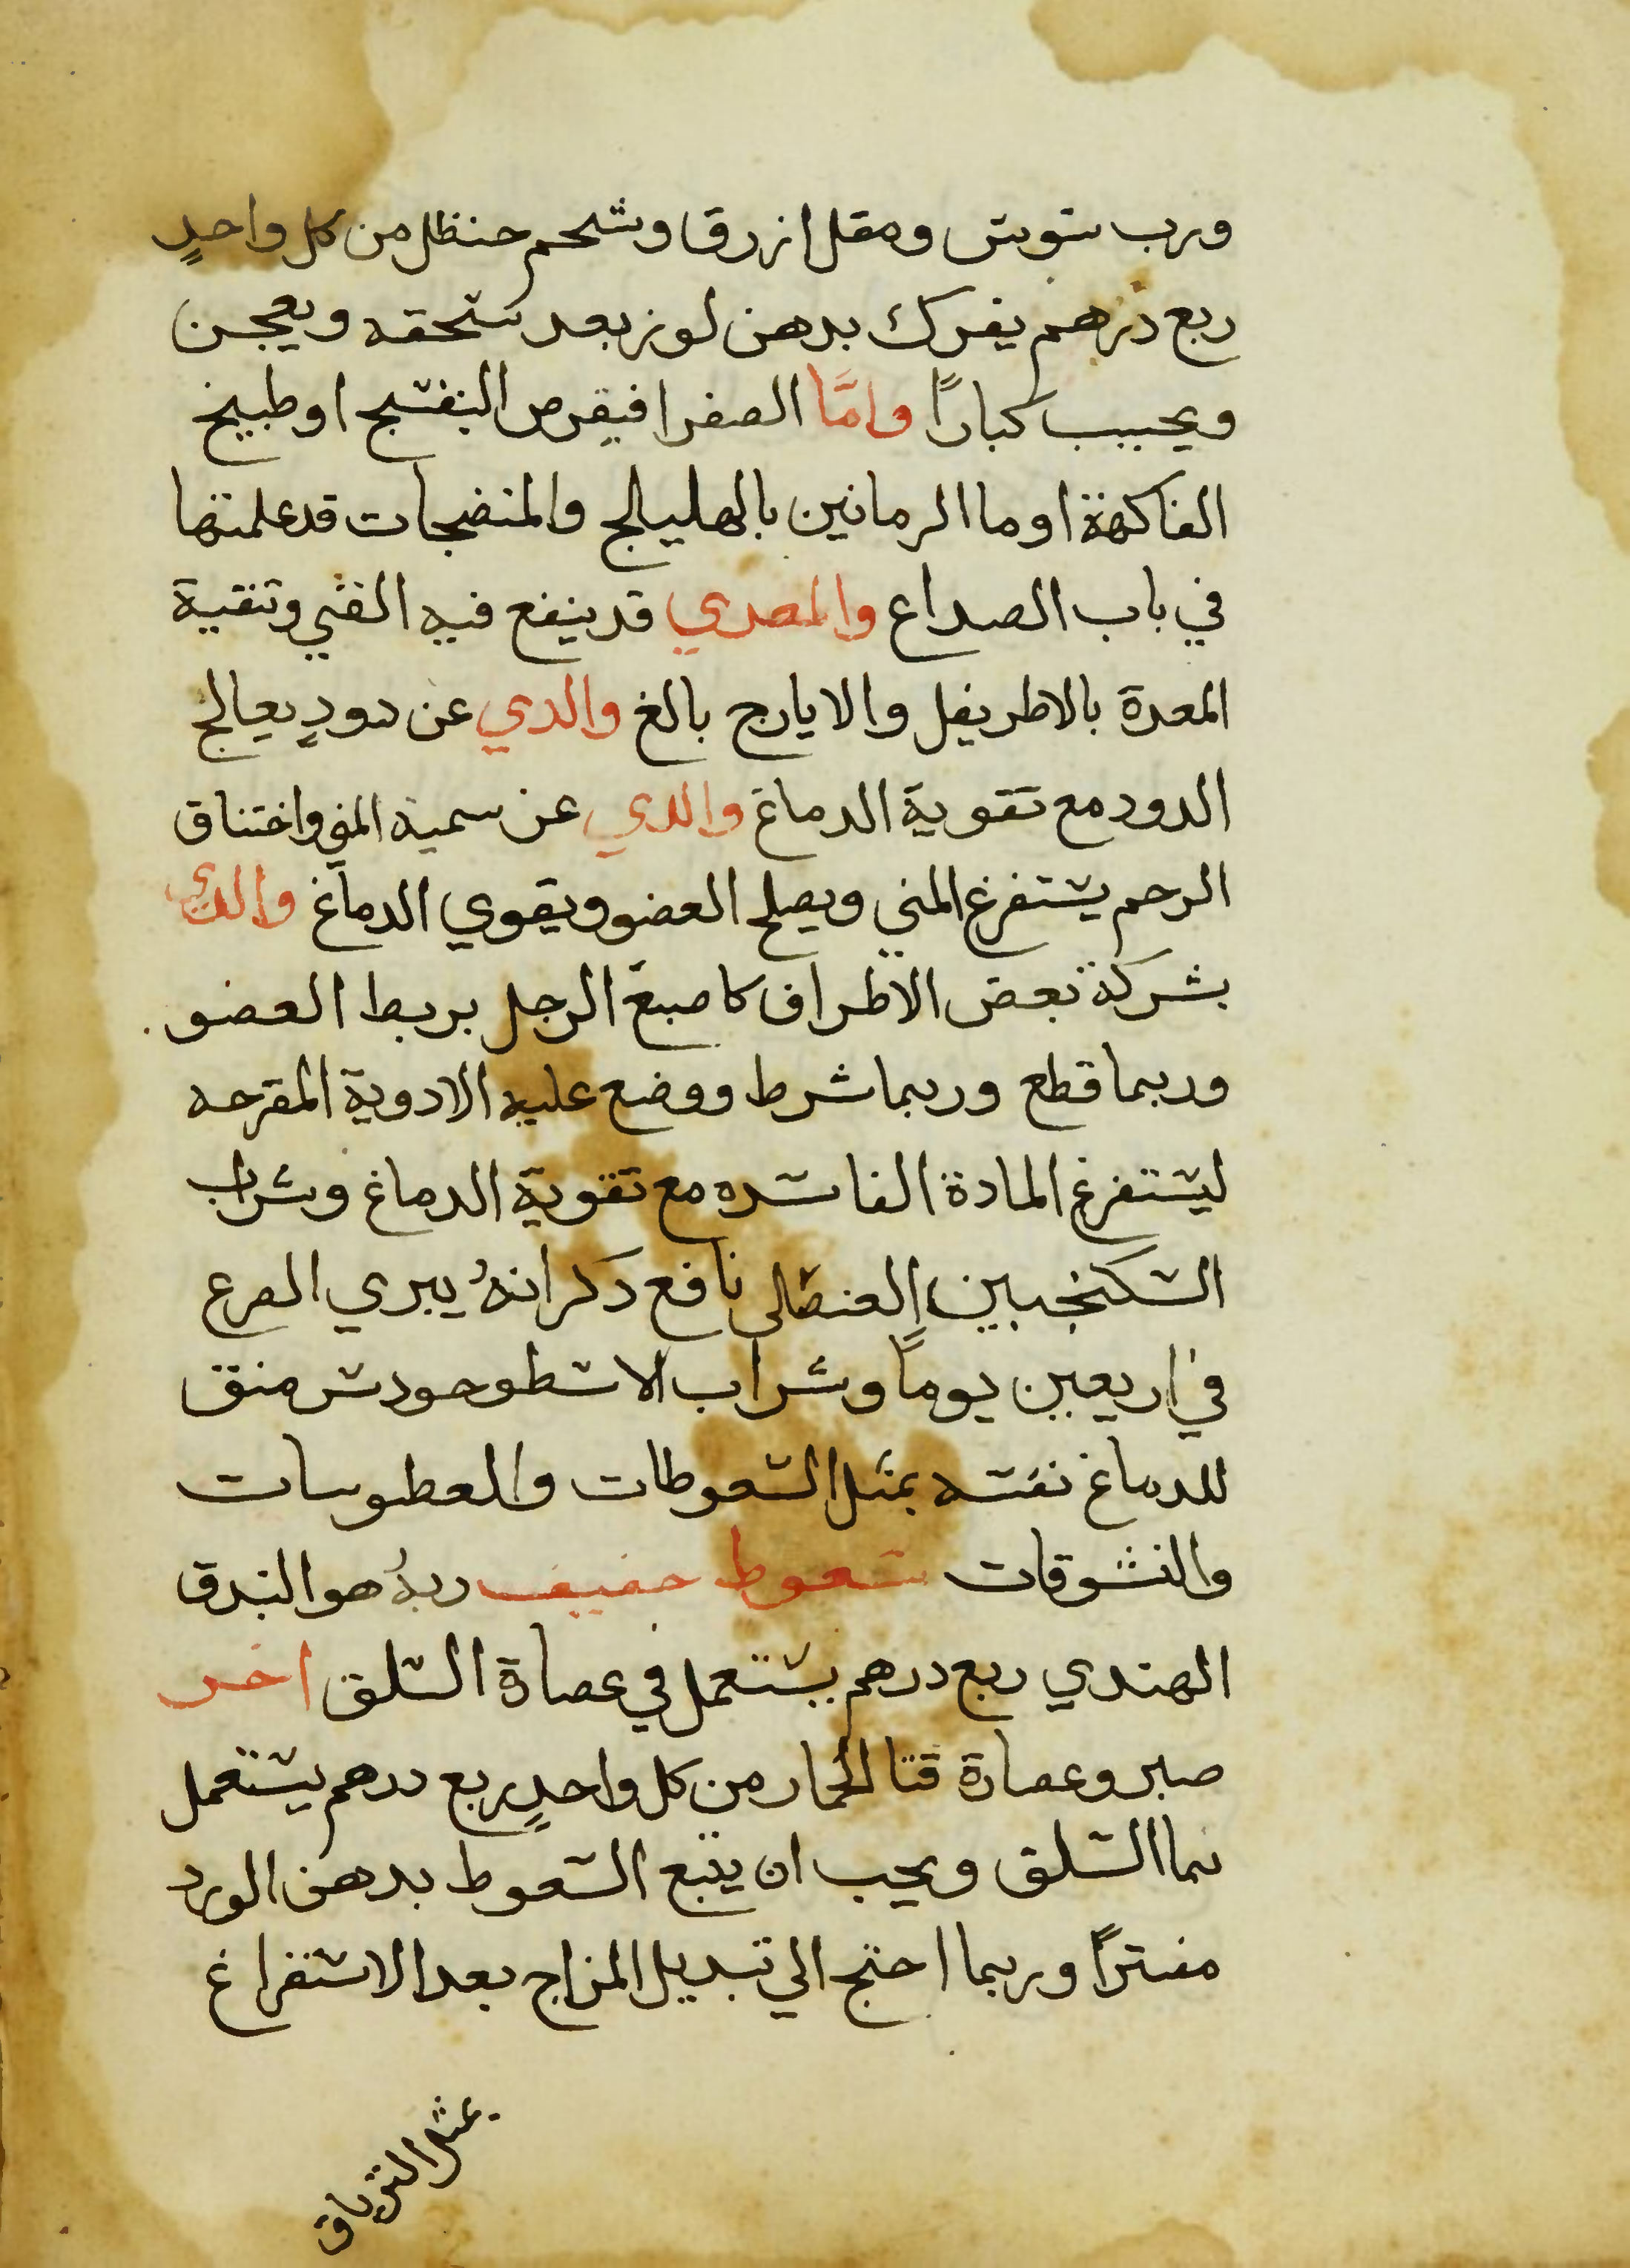 ورب سوس ومقل ازرق وشحم حنظل من كل واحدٍ
ربع درهم يفرك بدهن لوز بعد سحقه ويعجن
ويحبب كبارًا وامَّا الصفرا فبقرص البنفسج او طبيخ
الفاكهة او ما الرمانين بالهليلج والمنضجات قد علمتها
في باب الصداع والمعدي قد ينفع فيه القي وتنقية
المعدة بالاطريفل والايارج بالغ والدي عن دودٍ يعالج
الدود مع تقوية الدماغ والدي عن سمية المني واختناق
الرحم يستفرغ المني ويصلح العضو ويقوي الدماغ والدي
بشركة بعض الاطراف كاصبع الرجل بربط العضو
وربما قطع وربما شرط ووضع عليه الادوية المقرحه
ليستفرغ المادة الفاسده مع تقوية الدماغ وشراب
السكنجبين العنصلي نافع دكر انهُ يبري الصرع
في اربعين يومًا وشراب الاسطوخودس منق
للدماغ نفسه بمثل السعوطات والعطوسات
والنشوقات سعوط خفيف ربهُ هو البندق
الهندي ربع درهم يستعمل في عصارة السلق اخر
صبر وعصارة قثا الحمار من كل واحدٍ ربع درهم يستعمل
بما السلق ويجب ان يتبع السعوط بدهن الورد
مفترًا وربما احتج الي تبديل المزاج بعد الاستفراغ
بمثل الترياق